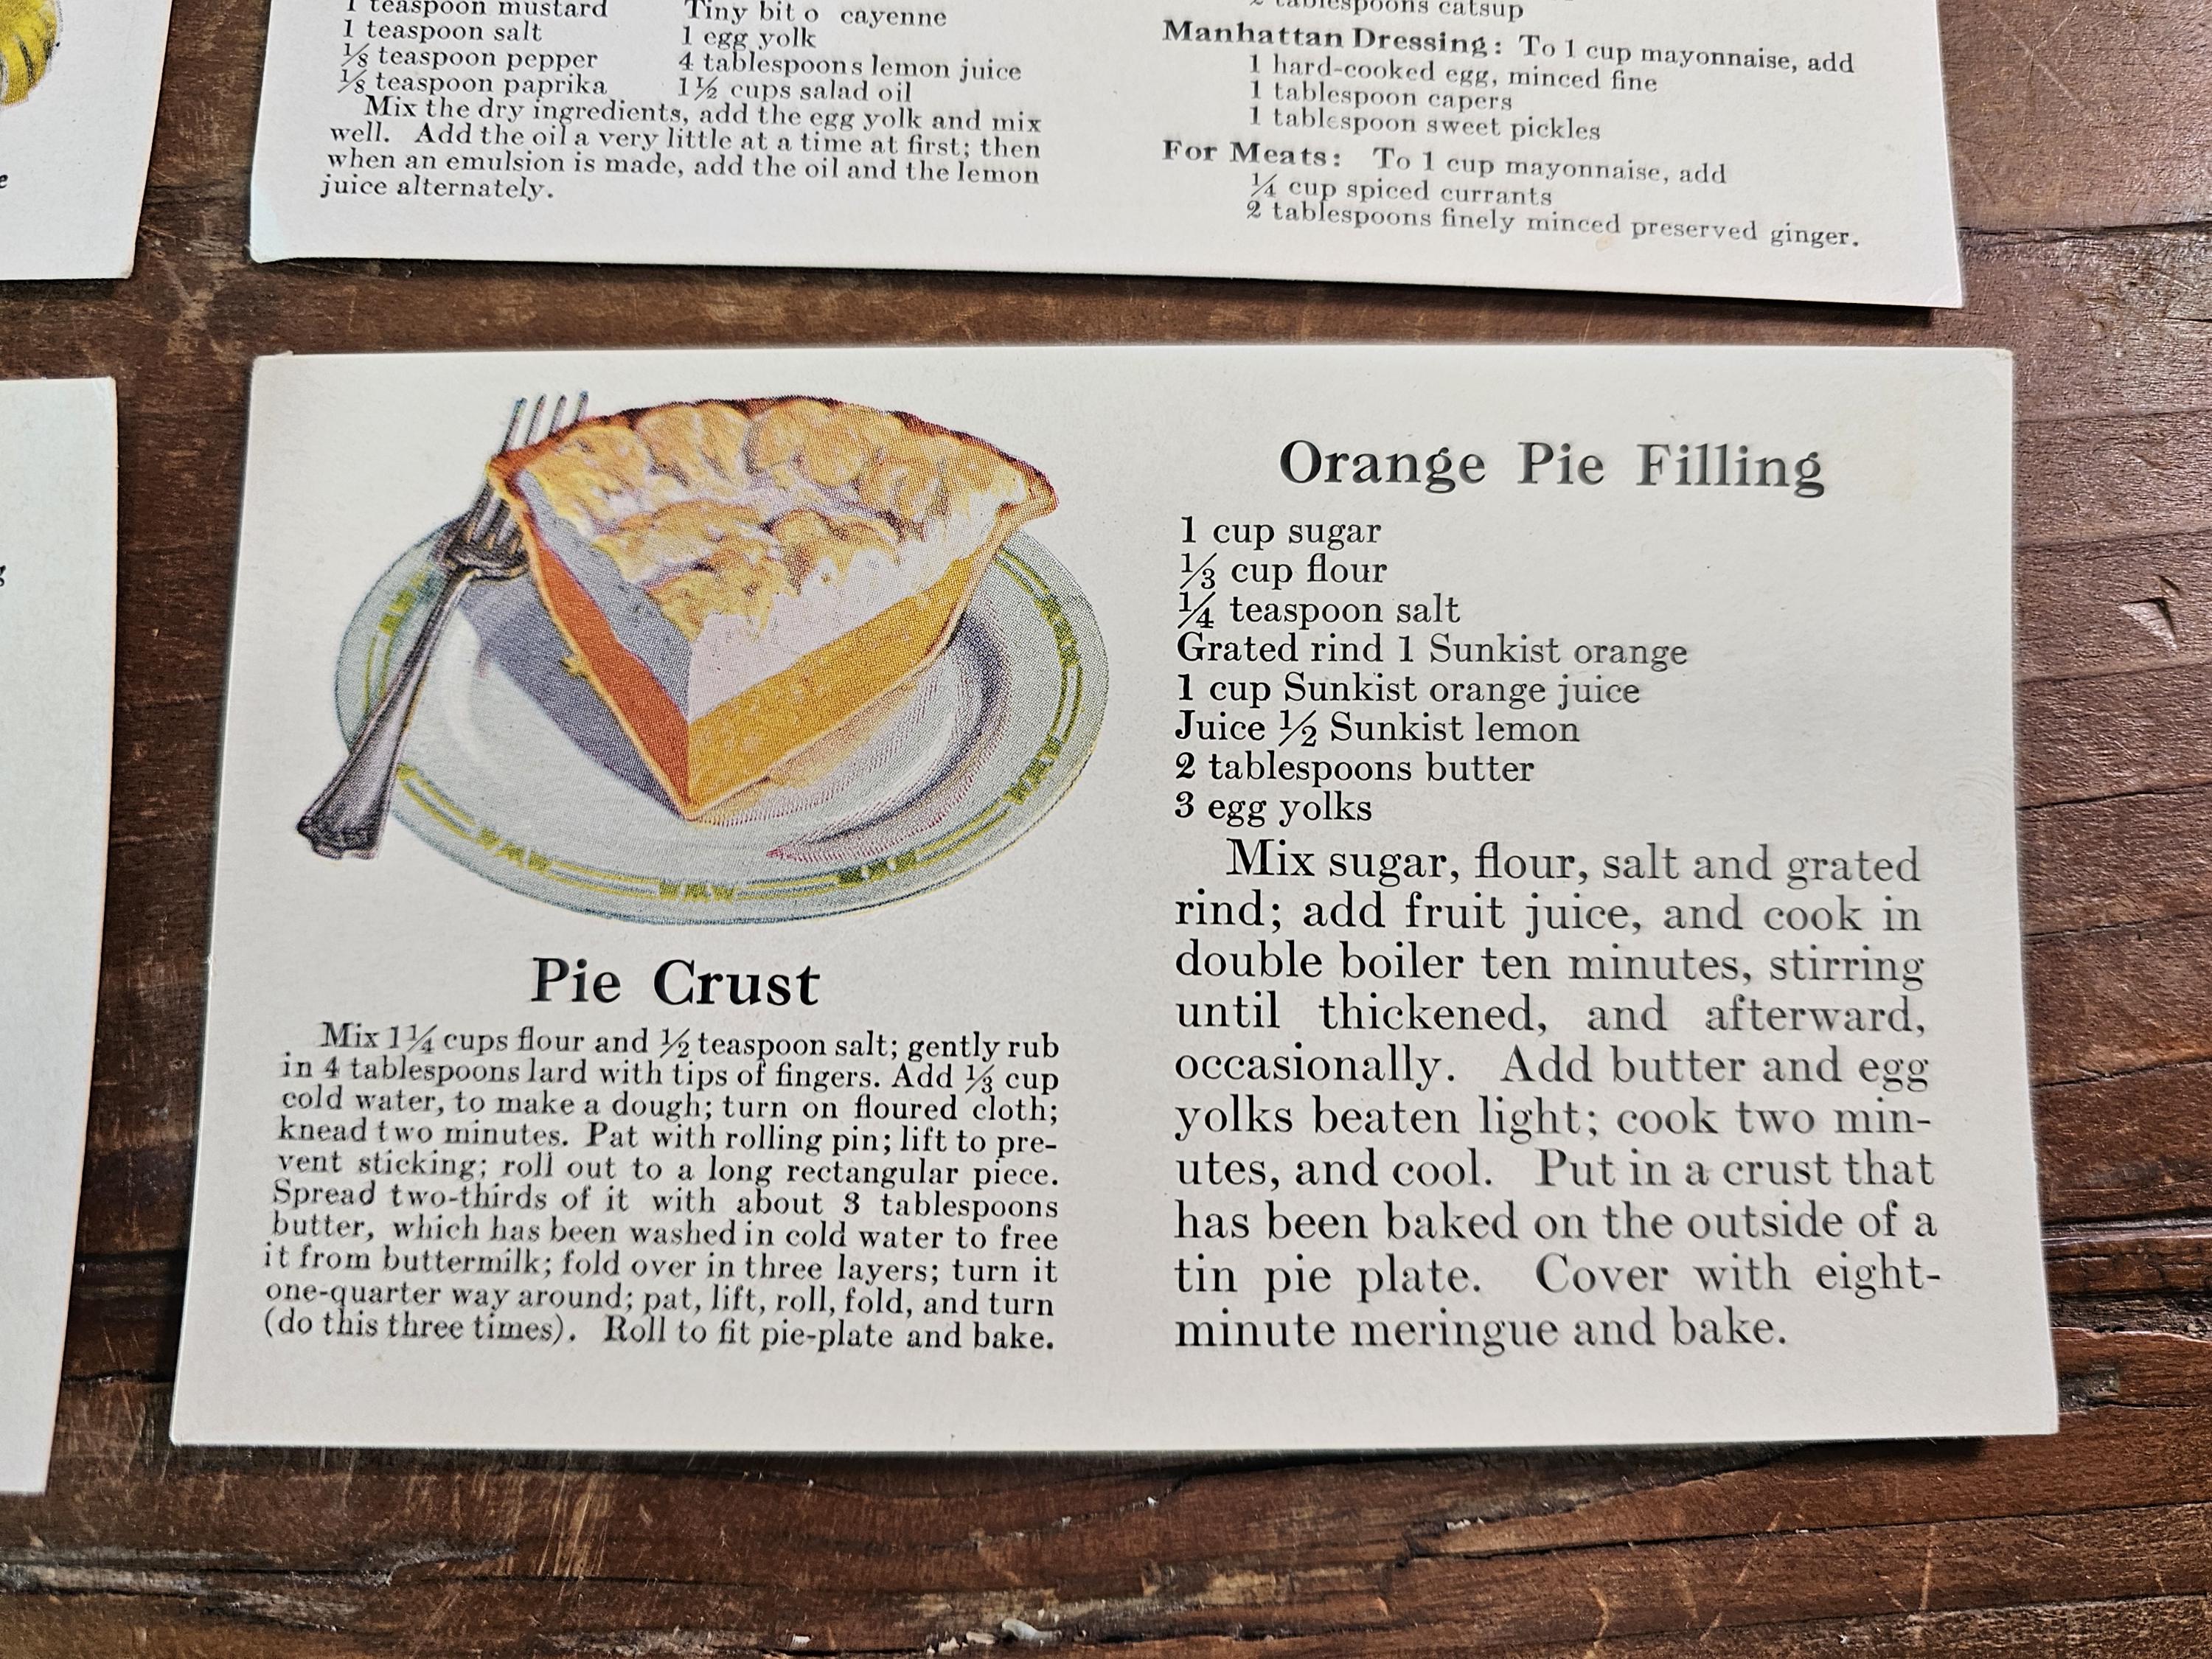 1 teaspoon mustard
1 teaspoon salt
⅛ teaspoon pepper
⅛ teaspoon paprika
Tiny bit o cayenne
1 egg yolk
4 tablespoons lemon juice
1½ cups salad oil
Mix the dry ingredients, add the egg yolk and mix
well. Add the oil a very little at a time at first; then
when an emulsion is made, add the oil and the lemon
juice alternately.
2 tablespoons catsup
Manhattan Dressing: To 1 cup mayonnaise, add
1 hard-cooked egg, minced fine
1 tablespoon capers
1 tablespoon sweet pickles
For Meats: To 1 cup mayonnaise, add
¼ cup spiced currants
2 tablespoons finely minced preserved ginger.
Pie Crust
Mix 1¼ cups flour and ½ teaspoon salt; gently rub
in 4 tablespoons lard with tips of fingers. Add ⅓ cup
cold water, to make a dough; turn on floured cloth;
knead two minutes. Pat with rolling pin; lift to pre-
vent sticking; roll out to a long rectangular piece.
Spread two-thirds of it with about 3 tablespoons
butter, which has been washed in cold water to free
it from buttermilk; fold over in three layers; turn it
one-quarter way around; pat, lift, roll, fold, and turn
(do this three times). Roll to fit pie-plate and bake.
Orange Pie Filling
1 cup sugar
⅓ cup flour
¼ teaspoon salt
Grated rind 1 Sunkist orange
1 cup Sunkist orange juice
Juice ½ Sunkist lemon
2 tablespoons butter
3 egg yolks
Mix sugar, flour, salt and grated
rind; add fruit juice, and cook in
double boiler ten minutes, stirring
until thickened, and afterward,
occasionally. Add butter and egg
yolks beaten light; cook two min-
utes, and cool. Put in a crust that
has been baked on the outside of a
tin pie plate. Cover with eight-
minute meringue and bake.